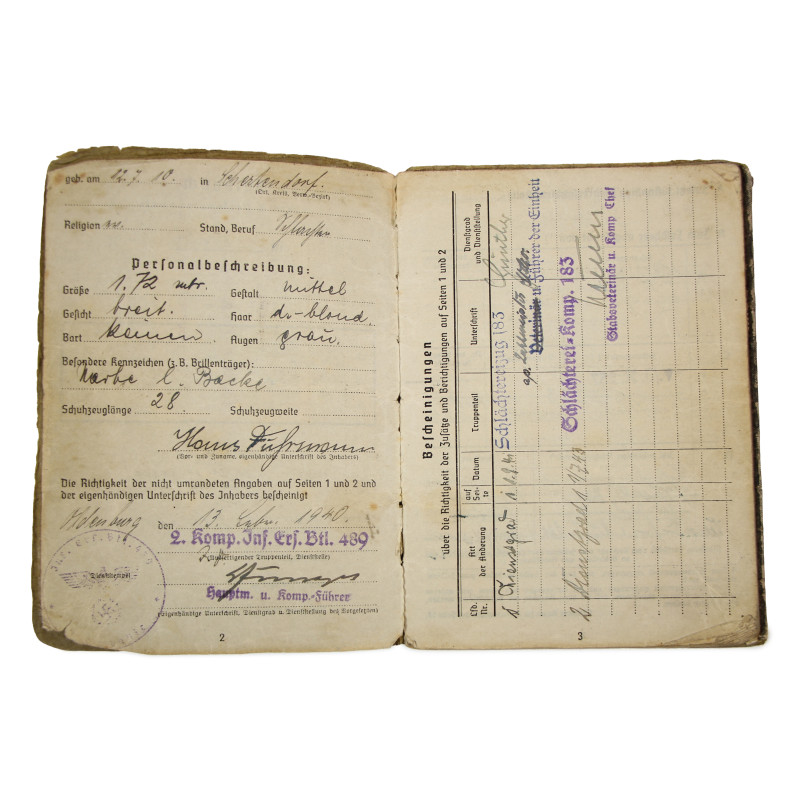 geb. am 12.7.10. in
(Ort, Kreis, Verw.-Bezirk)
Religion ev. Stand, Beruf
Personalbeschreibung:
Größe 1.72 mtr. Gestalt mittel
Gesicht breit. Haar d.-blond.
Bart keinen Augen grau.
Besondere Kennzeichen (z.B. Brillenträger):
Narbe l. Backe
Schuhzeuglänge 28 Schuhzeugweite
Hans Fuhrmann
(Vor- und Zuname, eigenhändige Unterschrift des Inhabers)
Die Richtigkeit der nicht umrandeten Angaben auf Seiten 1 und 2 und
der eigenhändigen Unterschrift des Inhabers bescheinigt
Oldenburg den 13. Febr. 1940.
2. Komp. Inf. Ers. Btl. 489
(Ausfertigender Truppenteil, Dienststelle)
Dienststempel
Hauptm. u. Komp.-Führer
(Eigenhändige Unterschrift, Dienstgrad u. Dienststellung des Vorgesetzten)
2
Bescheinigungen
über die Richtigkeit der Zusätze und Berichtigungen auf Seiten 1 und 2
Lfd. Nr. Art der Änderung auf Seite Datum Truppenteil Unterschrift Dienstgrad und Dienststellung
1 Dienstgrad 1 Schlächtereizug 183 Günther
Veterinär u. Führer der Einheit
2 Dienstgrad 1 1.7.43 Schlächterei-Komp. 183
Stabsveterinär u. Komp Chef
3